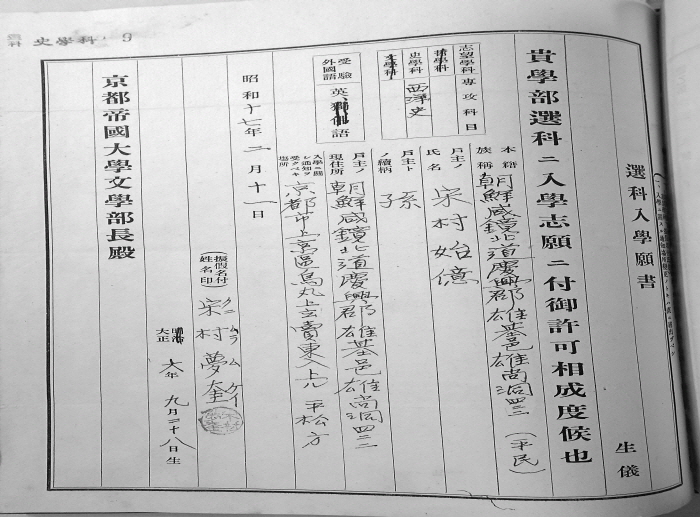 選科入學願書
生儀
貴學部選科ニ入學志願ニ付御許可相成度候也
本籍
族稱
朝鮮咸鏡北道慶興郡雄基邑雄尚洞四三 (平民)
戶主ノ
氏名
宋村始億
戶主ト
ノ續柄
孫
戶主ノ
現住所
朝鮮咸鏡北道慶興郡雄基邑雄尚洞四三
入學ニ關
シ通知ヲ
受クベキ
場所
京都市上京區烏丸上立賣東入上ル 平松方
志望學科 專攻科目
哲學科
史學科 西洋史
文學科
受驗
外國語
英 語
昭和十七年二月十一日
(振假名付)
姓名印
宋村夢奎
大正 六年九月二十八日生
京都帝國大學文學部長殿
史學科